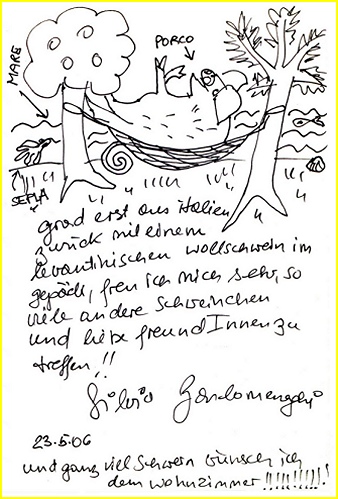 MARE
PORCO
SEPIA
grad erst aus italien
zurück mit einem
levantinischen wollschwein im
gepäck, freu ich mich sehr, so
viele andere schweinchen
und liebe freundInnen zu
treffen!!
Silvio
23.5.06
und ganz viel schwein wünsch ich
dem wohnzimmer!!!!!!!!!